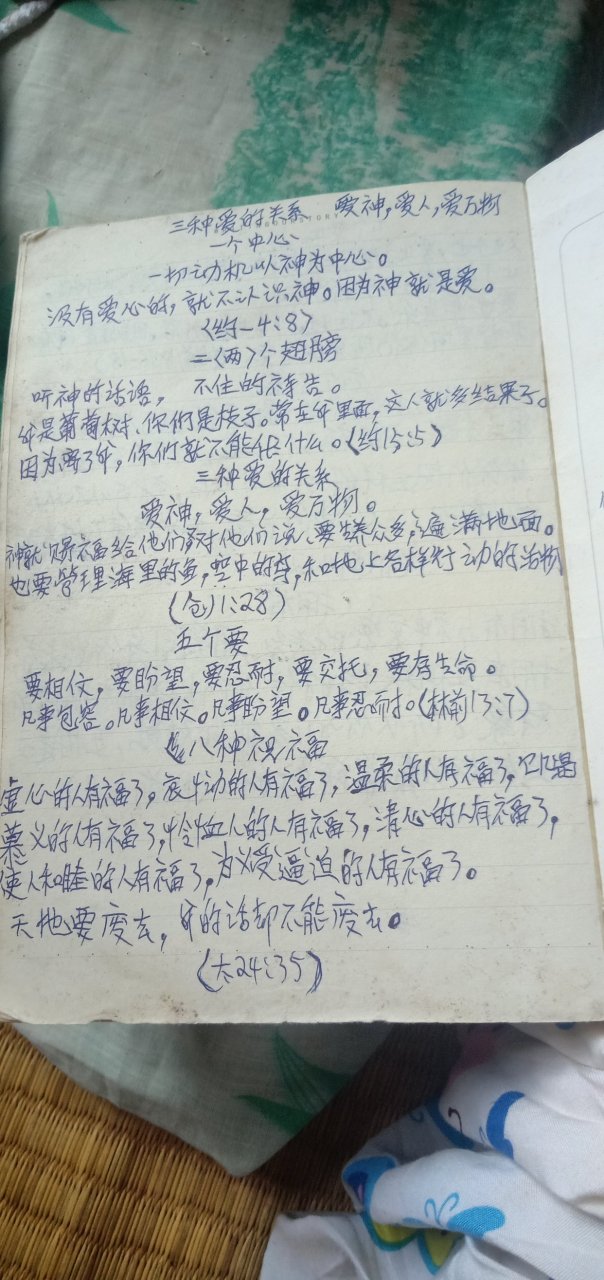 三种爱的关系 爱神,爱人,爱万物
一个中心
一切动机以神为中心。
没有爱心的,就不认识神。因为神就是爱。
〈约一4:8〉
二〈两〉个翅膀
听神的话语, 不住的祷告。
我是葡萄树、你们是枝子。常在我里面,这人就多结果子。
因为离了我,你们就不能做什么。〈约15:5〉
三种爱的关系
爱神,爱人,爱万物。
神就赐福给他们,又对他们说、要生养众多,遍满地面。
也要管理海里的鱼,空中的鸟,和地上各样行动的活物
(创1:28)
五个要
要相信,要盼望,要忍耐,要交托,要存生命。
凡事包容。凡事相信。凡事盼望。凡事忍耐。(林前13:7)
八种祝福
虚心的人有福了,哀恸的人有福了,温柔的人有福了,饥渴
慕义的人有福了,怜恤人的人有福了,清心的人有福了,
使人和睦的人有福了,为义受逼迫的人有福了。
天地要废去,我的话却不能废去。
(太24:35)